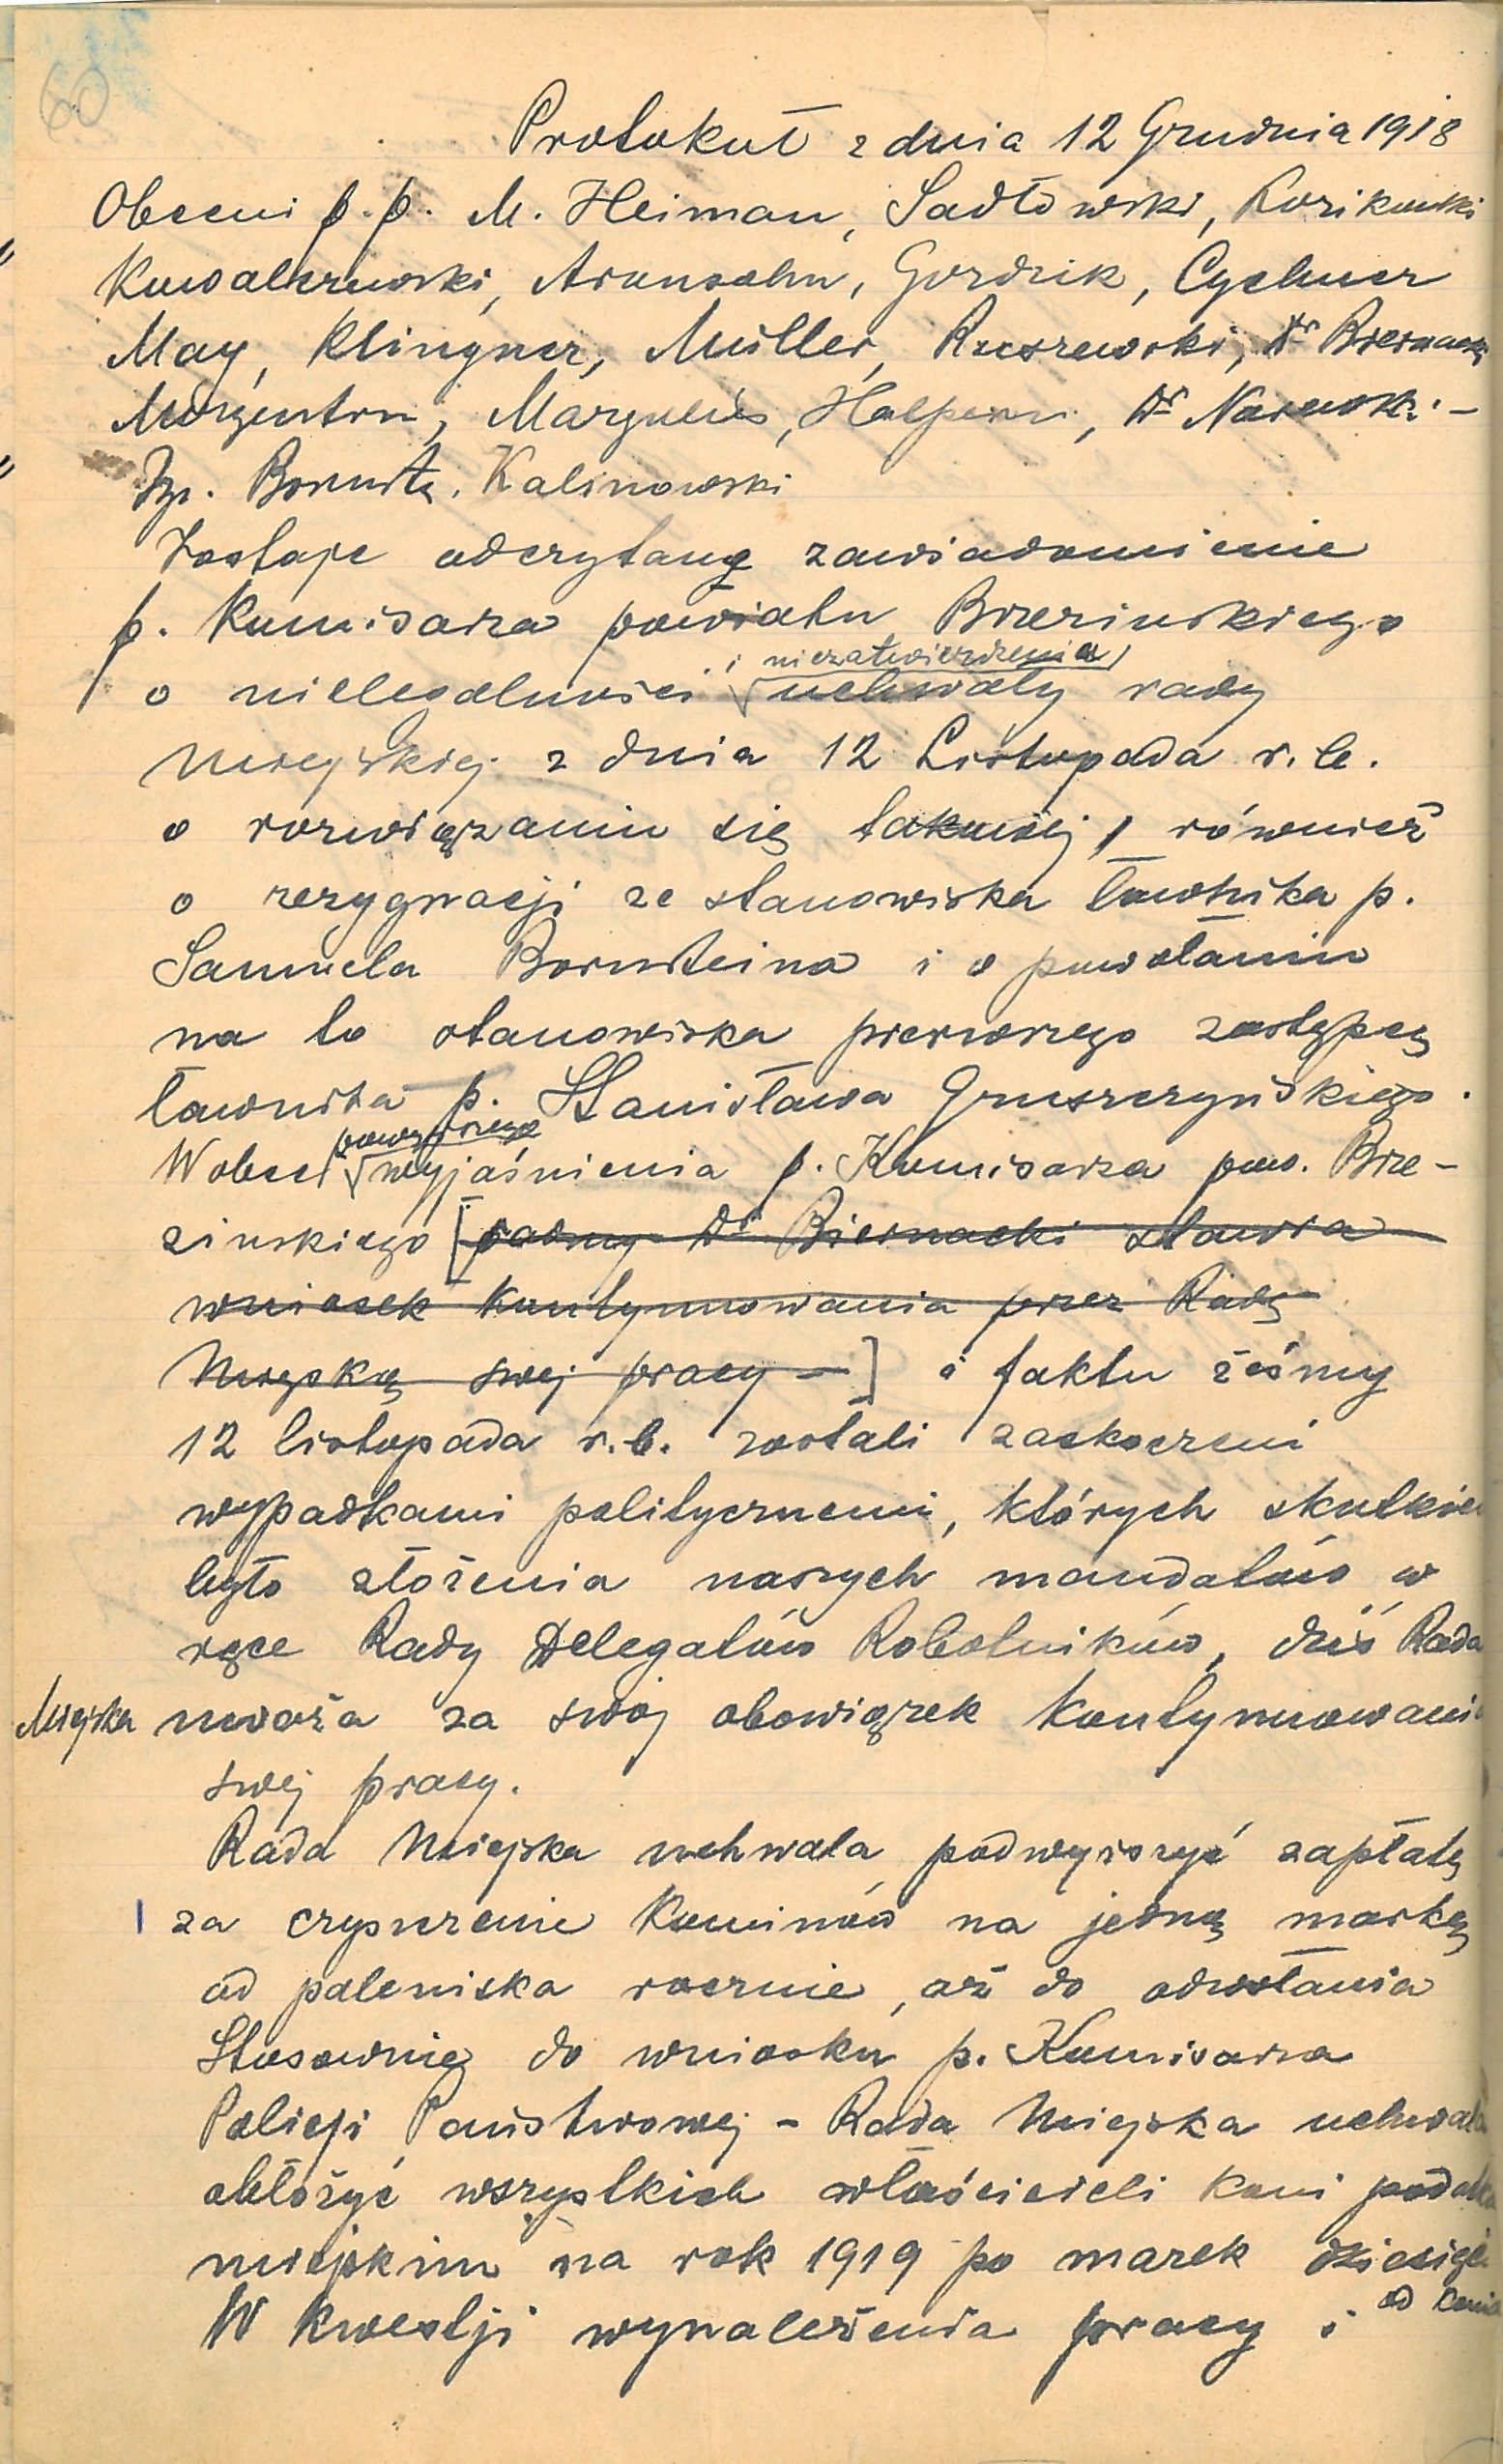 60
Protokuł z dnia 12 Grudnia 1918
Obecni p.p. M. Heiman, Sadłowski, Rozikowski
Kowalczewski, Aronsohn, Gordzik, Cychner
May, Klingner, Müller, Ruszewski, Dr Biernacki
Morgentrn, Margulies, Halpern, Dr Narewski –
Kalinowski
Zostaje odczytane zawiadomienie
p. Komisarza powiatu Brzezinskiego
i niezatwierdzenia
o nielegalności uchwały rady
Miejskiej z dnia 12 Listopada r.b.
o rozwiązaniu się takowej, również
o rezygnacji ze stanowiska ławnika p.
Samuela Bornsteina i o powołaniu
na to stanowiska pierwszego zastępcę
ławnika p. Stanisława Gruszczyńskiego.
powyższego
Wobec wyjaśnienia p. Komisarza pow. Brze-
zinskiego [radny Dr Biernacki stawia
wniosek kontynuowania przez Radę
Miejską swej pracy –] i faktu żeśmy
12 listopada r.b. zostali zaskoczeni
wypadkami politycznemi, których skutkiem
było złożenia naszych mandatów w
ręce Rady Delegatów Robotników, dziś Rada
Miejska uważa za swój obowiązek kontynuowania
swej pracy.
Rada Miejska uchwala podwyższyć zapłatę
za czyszczenie kominów na jedną markę
od paleniska rocznie, aż do odwołania
Stosownie do wniosku p. Komisarza
Policji Państwowej – Rada Miejska uchwala
obłożyć wszystkich właścicieli koni podatkiem
miejskim na rok 1919 po marek dziesięć
od konia
W kwestji wynalezienia pracy i